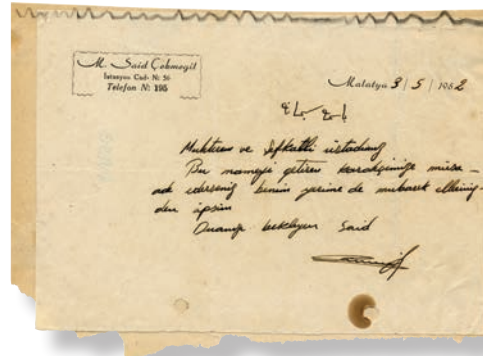 M. Said Çekmegil
İstasyon Cad. № 56
Telefon № 195
Malatya 3 / 5 / 1982
Muhterem ve Şefkatli üstadımız
Bu nameyi getiren kardeşinize müsa-
ade ederseniz benim yerime de mübarek elleriniz-
den öpsün
Duanızı bekleyen Said